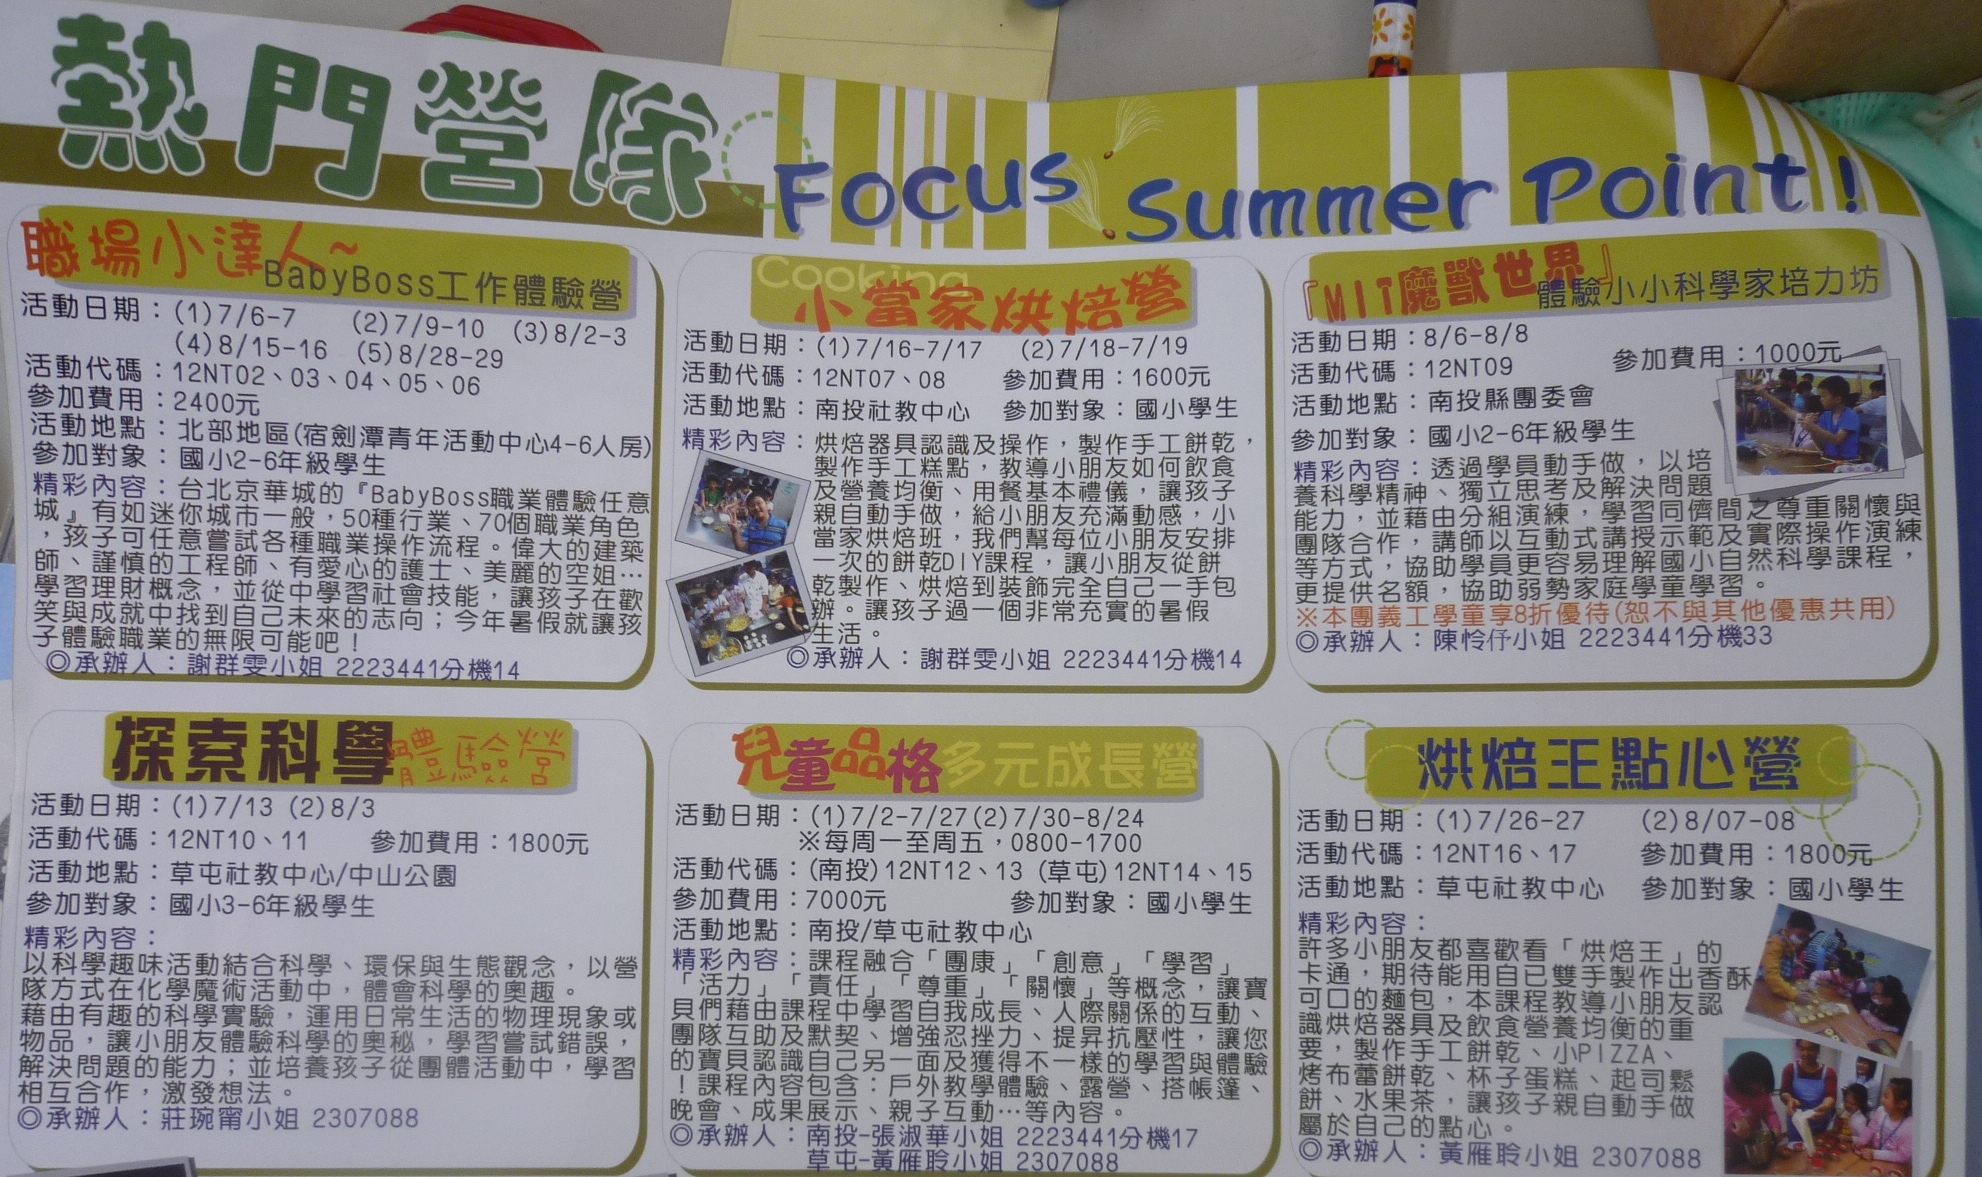 熱門營隊
Focus Summer Point!
職場小達人~
BabyBoss工作體驗營
活動日期：(1)7/6-7 (2)7/9-10 (3)8/2-3
(4)8/15-16 (5)8/28-29
活動代碼：12NT02、03、04、05、06
參加費用：2400元
活動地點：北部地區(宿劍潭青年活動中心4-6人房)
參加對象：國小2-6年級學生
精彩內容：台北京華城的『BabyBoss職業體驗任意
城』有如迷你城市一般，50種行業、70個職業角色
，孩子可任意嘗試各種職業操作流程。偉大的建築
師、謹慎的工程師、有愛心的護士、美麗的空姐…
學習理財概念，並從中學習社會技能，讓孩子在歡
笑與成就中找到自己未來的志向；今年暑假就讓孩
子體驗職業的無限可能吧！
◎承辦人：謝群雯小姐 2223441分機14
Cooking
小當家烘焙營
活動日期：(1)7/16-7/17 (2)7/18-7/19
活動代碼：12NT07、08 參加費用：1600元
活動地點：南投社教中心 參加對象：國小學生
精彩內容：烘焙器具認識及操作，製作手工餅乾，
製作手工糕點，教導小朋友如何飲食
及營養均衡、用餐基本禮儀，讓孩子
親自動手做，給小朋友充滿動感，小
當家烘焙班，我們幫每位小朋友安排
一次的餅乾DIY課程，讓小朋友從餅
乾製作、烘焙到裝飾完全自己一手包
辦。讓孩子過一個非常充實的暑假
生活。
◎承辦人：謝群雯小姐 2223441分機14
『MIT魔獸世界』
體驗小小科學家培力坊
活動日期：8/6-8/8
活動代碼：12NT09 參加費用：1000元
活動地點：南投縣團委會
參加對象：國小2-6年級學生
精彩內容：透過學員動手做，以培
養科學精神、獨立思考及解決問題
能力，並藉由分組演練，學習同儕間之尊重關懷與
團隊合作，講師以互動式講授示範及實際操作演練
等方式，協助學員更容易理解國小自然科學課程，
更提供名額，協助弱勢家庭學童學習。
※本團義工學童享8折優待(恕不與其他優惠共用)
◎承辦人：陳怜伃小姐 2223441分機33
探索科學體驗營
活動日期：(1)7/13 (2)8/3
活動代碼：12NT10、11 參加費用：1800元
活動地點：草屯社教中心/中山公園
參加對象：國小3-6年級學生
精彩內容：
以科學趣味活動結合科學、環保與生態觀念，以營
隊方式在化學魔術活動中，體會科學的奧趣。
藉由有趣的科學實驗，運用日常生活的物理現象或
物品，讓小朋友體驗科學的奧秘，學習嘗試錯誤，
解決問題的能力；並培養孩子從團體活動中，學習
相互合作，激發想法。
◎承辦人：莊琬甯小姐 2307088
兒童品格多元成長營
活動日期：(1)7/2-7/27(2)7/30-8/24
※每周一至周五，0800-1700
活動代碼：(南投)12NT12、13 (草屯)12NT14、15
參加費用：7000元 參加對象：國小學生
活動地點：南投/草屯社教中心
精彩內容：課程融合「團康」「創意」「學習」
「活力」「責任」「尊重」「關懷」等概念，讓寶
貝們藉由課程中學習自我成長、人際關係的互動、
團隊互助及默契、增強忍挫力、提昇抗壓性，讓您
的寶貝認識自己另一面及獲得不一樣的學習與體驗
！課程內容包含：戶外教學體驗、露營、搭帳篷、
晚會、成果展示、親子互動…等內容。
◎承辦人：南投-張淑華小姐 2223441分機17
草屯-黃雁聆小姐 2307088
烘焙王點心營
活動日期：(1)7/26-27 (2)8/07-08
活動代碼：12NT16、17 參加費用：1800元
活動地點：草屯社教中心 參加對象：國小學生
精彩內容：
許多小朋友都喜歡看「烘焙王」的
卡通，期待能用自已雙手製作出香酥
可口的麵包，本課程教導小朋友認
識烘焙器具及飲食營養均衡的重
要，製作手工餅乾、小PIZZA、
烤布蕾餅乾、杯子蛋糕、起司鬆
餅、水果茶，讓孩子親自動手做
屬於自己的點心。
◎承辦人：黃雁聆小姐 2307088